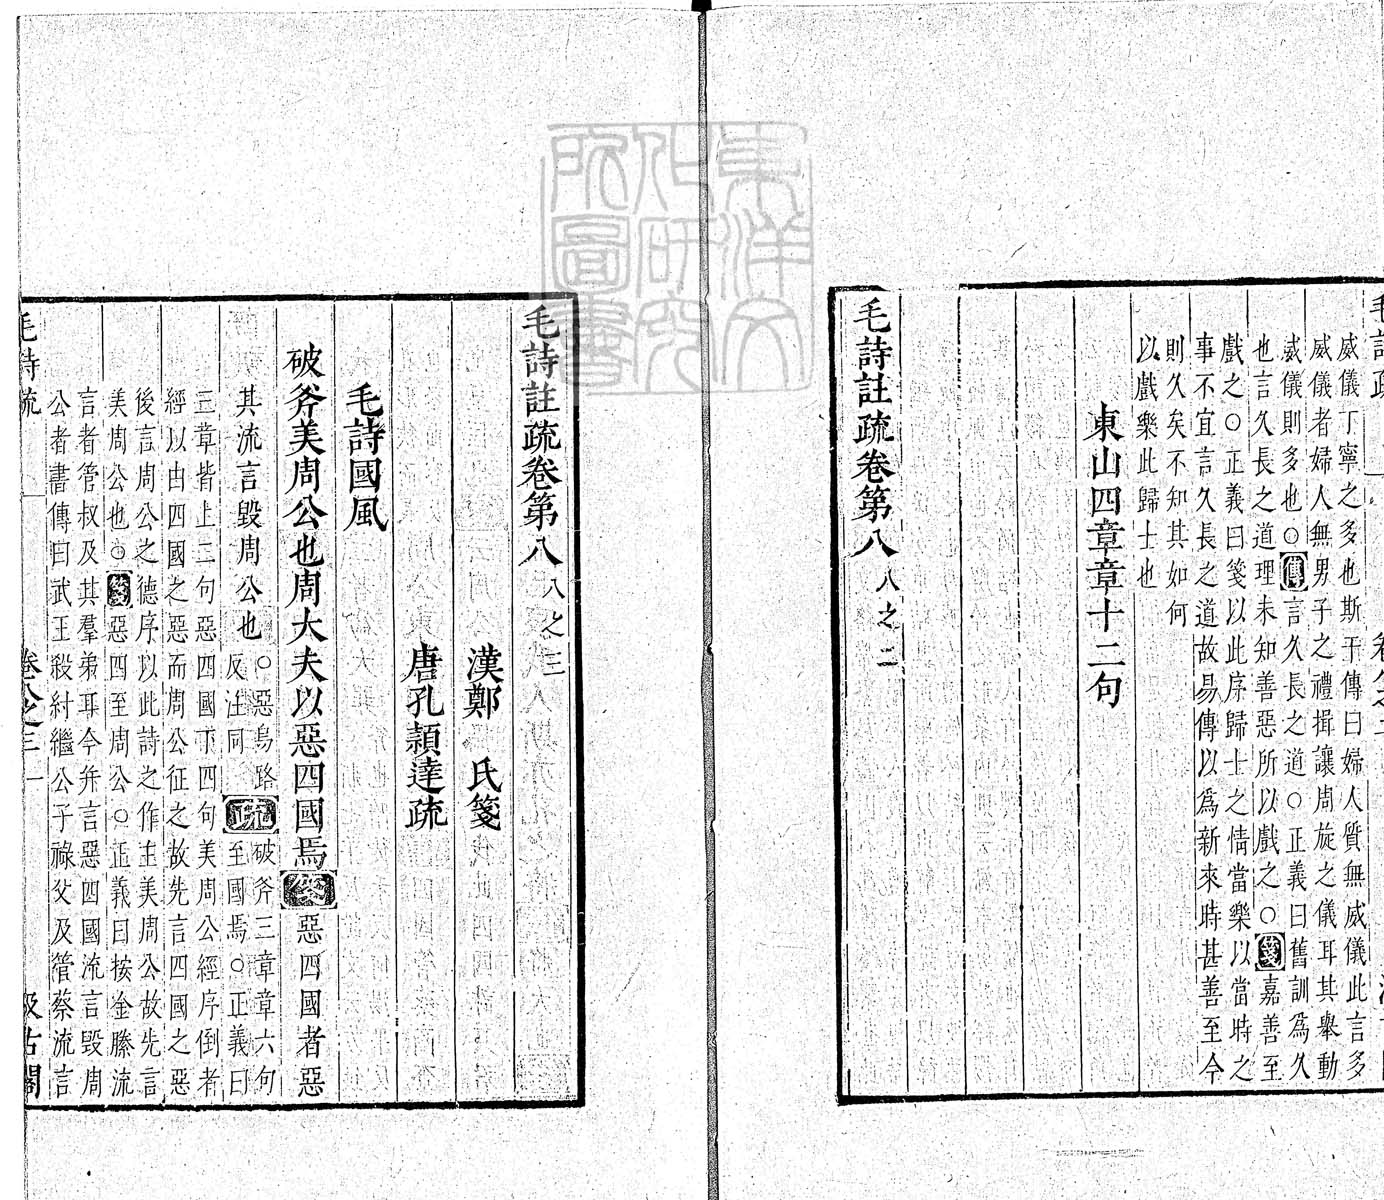 威儀丁寧之多也斯干傳曰婦人質無威儀此言多
威儀者婦人無男子之禮揖讓周旋之儀耳其舉動
威儀則多也○傳言久長之道○正義曰舊訓為久
也言久長之道理未知善惡所以戲之○箋嘉善至
戲之○正義曰箋以此序歸士之情當樂以當時之
事不宜言久長之道故易傳以為新來時甚善至今
則久矣不知其如何
以戲樂此歸士也
東山四章章十二句
毛詩註疏卷第八 八之二
毛詩註疏卷第八 八之三
漢鄭 氏箋
唐孔穎達疏
毛詩國風
破斧美周公也周大夫以惡四國焉箋惡四國者惡
其流言毀周公也○惡烏路
反注同疏破斧三章章六句
至國焉○正義曰
三章皆上二句惡四國下四句美周公經序倒者
經以由四國之惡而周公征之故先言四國之惡
後言周公之德序以此詩之作主美周公故先言
美周公也○箋惡四至周公○正義曰按金縢流
言者管叔及其羣弟耳今并言惡四國流言毀周
公者書傳曰武王殺紂繼公子祿父及管蔡流言
毛詩疏 卷八之三 一 汲古閣
東洋文化研究所圖書